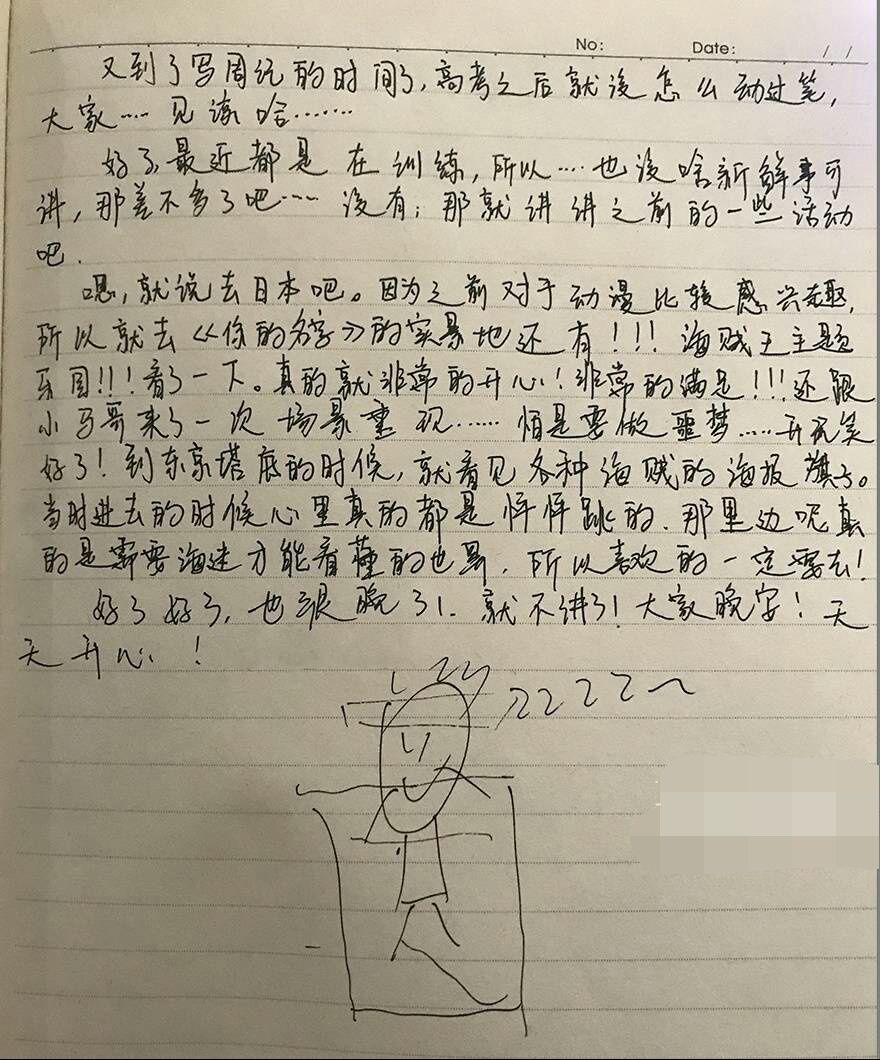 No:
Date: / /
又到了写周记的时间了,高考之后就没怎么动过笔,
大家……见谅哈……
好了,最近都是在训练,所以……也没啥新鲜事可
讲,那差不多了吧……没有;那就讲讲之前的一些活动
吧.
嗯,就说去日本吧。因为之前对于动漫比较感兴趣,
所以就去《你的名字》的实景地还有!!!海贼王主题
乐园!!!看了一下。真的就非常的开心!非常的满足!!!还跟
小马哥来了一次场景重现……怕是要做噩梦……开玩笑
好了!到东京塔底的时候,就看见各种海贼的海报旗子。
当时进去的时候心里真的都是怦怦跳的.那里边呢真
的是需要海迷才能看懂的世界,所以喜欢的一定要去!
好了好了,也很晚了!.就不讲了!大家晚安!天
天开心!
ZZZZ~